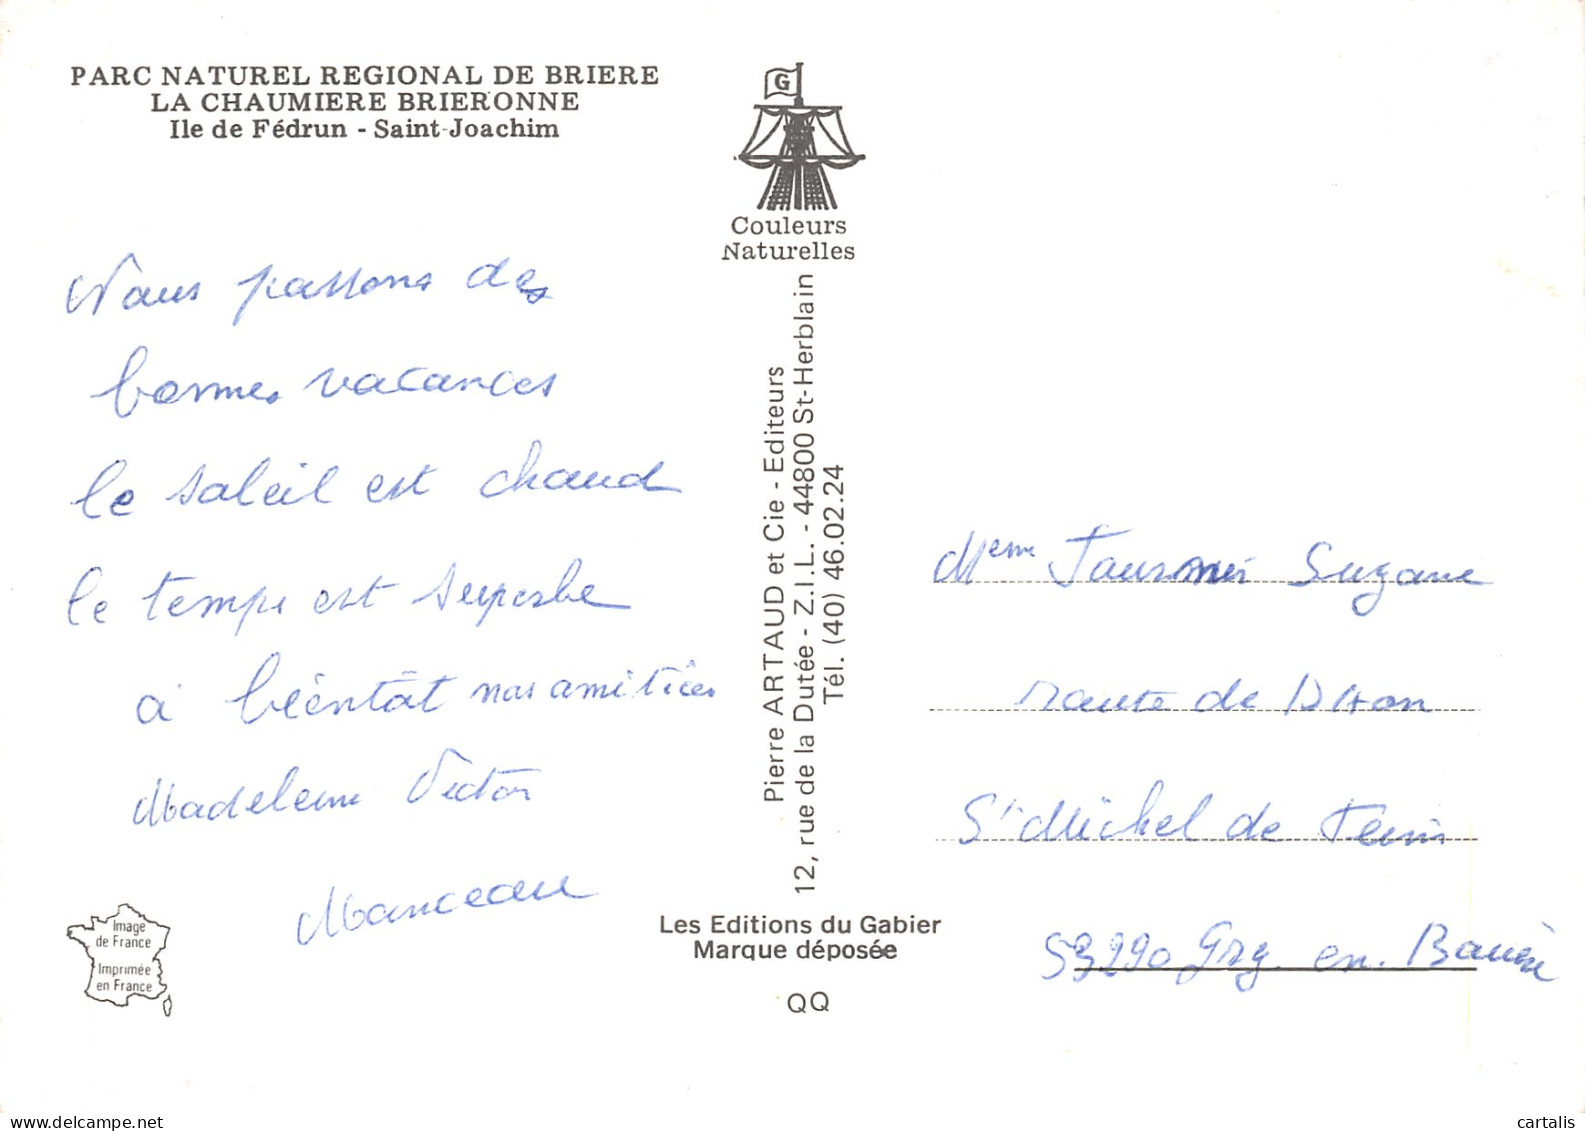 PARC NATUREL REGIONAL DE BRIERE
LA CHAUMIERE BRIERONNE
Ile de Fédrun - Saint-Joachim
G
Couleurs
Naturelles
Nous passons des
bonnes vacances
le soleil est chaud
le temps est superbe
a bientôt nos amitiés
Madeleine Victor
Manceau
Pierre ARTAUD et Cie - Editeurs
12, rue de la Dutée - Z.I.L. - 44800 St-Herblain
Tél. (40) 46.02.24
Les Editions du Gabier
Marque déposée
QQ
Image
de France
Imprimée
en France
Meme Suzane
route de
St Michel de
53290 Grg en
cartalis
www.delcampe.net